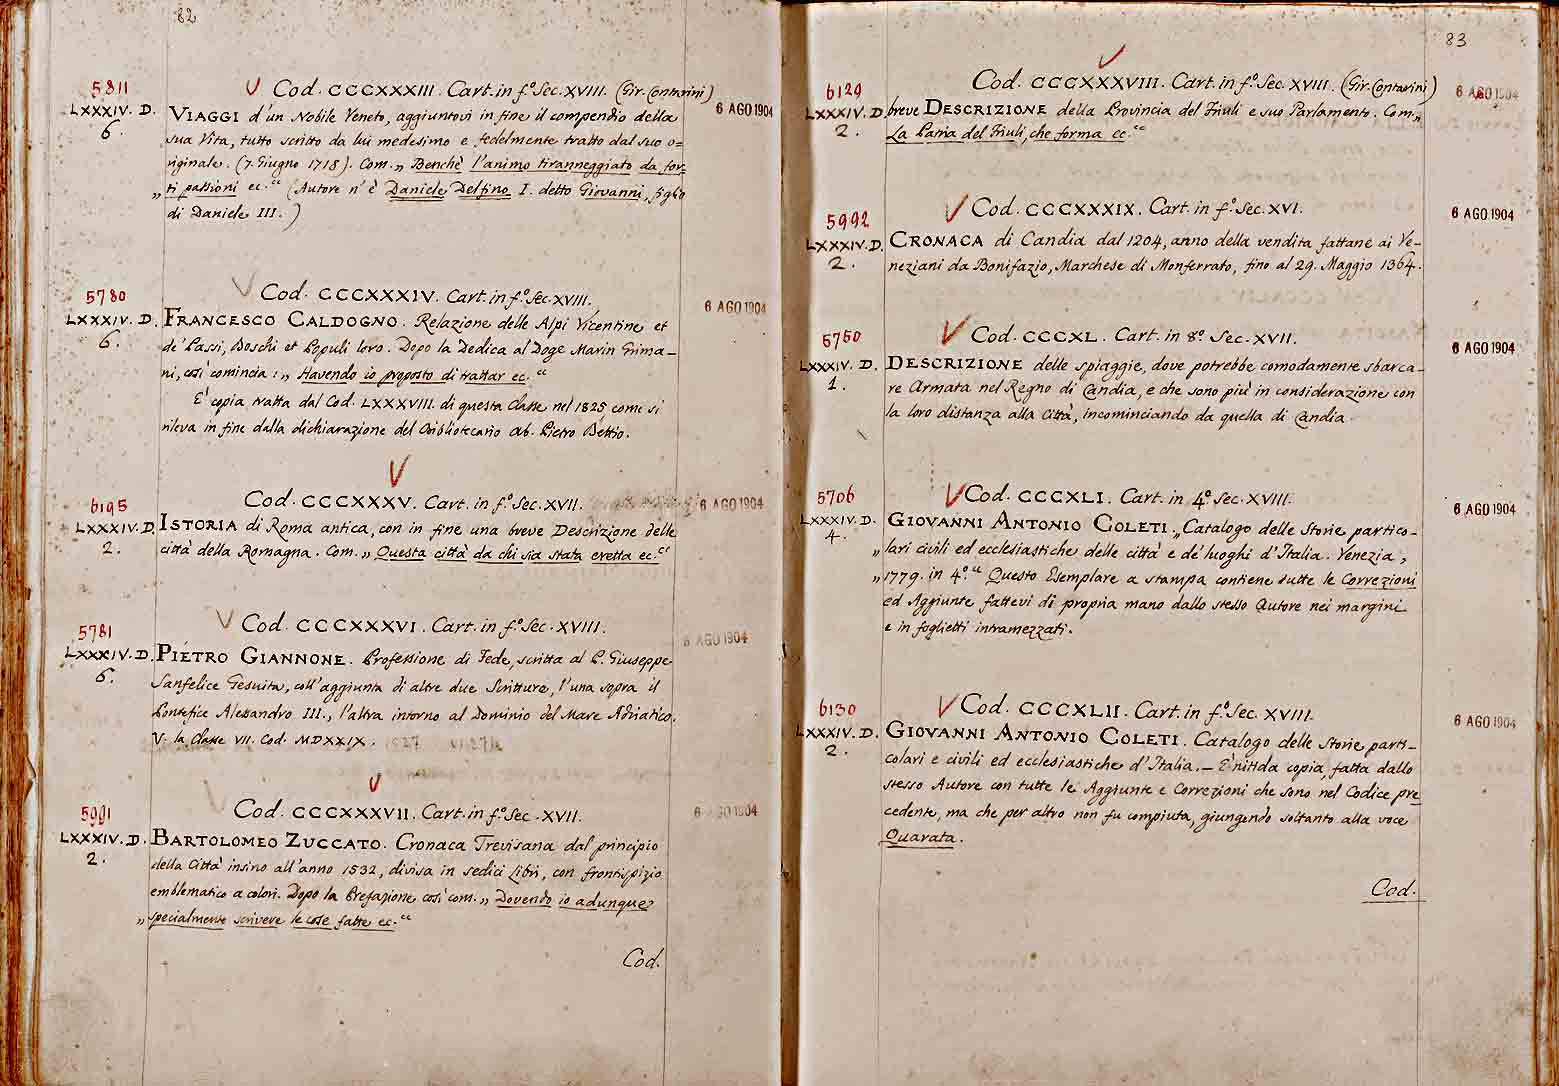 82
5811
V Cod. CCCXXXIII. Cart. in f.º Sec. XVIII. (Gir. Contarini)
6 AGO 1904
LXXXIV. D.
6.
VIAGGI d'un Nobile Veneto, aggiuntovi in fine il compendio della
sua Vita, tutto scritto da lui medesimo e fedelmente tratto dal suo o=
riginale. (7. Giugno 1718). Com. „ Benchè l'animo tiranneggiato da for=
„ ti passioni ec. “ (Autore n' è Daniele Delfino I. detto Giovanni, figlio
di Daniele III. )
5780
V Cod. CCCXXXIV. Cart. in f.º Sec. XVIII.
6 AGO 1904
LXXXIV. D.
6.
FRANCESCO CALDOGNO. Relazione delle Alpi Vicentine et
de' Passi, Boschi et Populi loro. Dopo la Dedica al Doge Marin Grima—
ni, così comincia: „ Havendo io proposto di trattar ec. “
E' copia tratta dal Cod. LXXXVIII. di questa Classe nel 1825 come si
rileva in fine dalla dichiarazione del Bibliotecario Ab. Pietro Bettio.
6195
V
Cod. CCCXXXV. Cart. in f.º Sec. XVII.
6 AGO 1904
LXXXIV. D.
2.
ISTORIA di Roma antica, con in fine una breve Descrizione delle
città della Romagna. Com. „ Questa città da chi sia stata eretta ec. “
5781
V Cod. CCCXXXVI. Cart. in f.º Sec. XVIII.
6 AGO 1904
LXXXIV. D.
6.
PIETRO GIANNONE. Professione di Fede, scritta al P. Giuseppe
Sanfelice Gesuita, coll'aggiunta di altre due Scritture, l'una sopra il
Pontefice Alessandro III., l'altra intorno al Dominio del Mare Adriatico.
V. la Classe VII. Cod. MDXXIX.
5991
V
Cod. CCCXXXVII. Cart. in f.º Sec. XVII.
6 AGO 1904
LXXXIV. D.
2.
BARTOLOMEO ZUCCATO. Cronaca Trevisana dal principio
della Città insino all'anno 1532, divisa in sedici Libri, con frontispizio
emblematico a colori. Dopo la Prefazione così com. „ Dovendo io adunque
„ specialmente scrivere le cose fatte ec. “
Cod.
83
6129
V
Cod. CCCXXXVIII. Cart. in f.º Sec. XVIII. (Gir. Contarini)
6 AGO 1904
LXXXIV. D.
2.
breve DESCRIZIONE della Provincia del Friuli e suo Parlamento. Com. „
La Patria del Friuli, che forma ec. “
5992
V Cod. CCCXXXIX. Cart. in f.º Sec. XVI.
6 AGO 1904
LXXXIV. D.
2.
CRONACA di Candia dal 1204, anno della vendita fattane ai Ve—
neziani da Bonifazio, Marchese di Monferrato, fino al 29. Maggio 1364.
5750
V Cod. CCCXL. Cart. in 8º. Sec. XVII.
6 AGO 1904
LXXXIV. D.
1.
DESCRIZIONE delle spiaggie, dove potrebbe comodamente sbarca—
re Armata nel Regno di Candia, e che sono più in considerazione con
la loro distanza alla Città, incominciando da quella di Candia.
5706
V Cod. CCCXLI. Cart. in 4º. Sec. XVIII.
6 AGO 1904
LXXXIV. D.
4.
GIOVANNI ANTONIO COLETI. „ Catalogo delle Storie partico—
„ lari civili ed ecclesiastiche delle città e de' luoghi d'Italia. Venezia,
„ 1779. in 4º. “ Questo Esemplare a stampa contiene tutte le Correzioni
ed Aggiunte fattevi di propria mano dallo stesso Autore nei margini
e in foglietti intramezzati.
6130
V Cod. CCCXLII. Cart. in f.º Sec. XVIII.
6 AGO 1904
LXXXIV. D.
2.
GIOVANNI ANTONIO COLETI. Catalogo delle Storie parti—
colari e civili ed ecclesiastiche d'Italia. — E' nitida copia, fatta dallo
stesso Autore con tutte le Aggiunte e Correzioni che sono nel Codice pre
cedente, ma che per altro non fu compiuta, giungendo soltanto alla voce
Quarata.
Cod.